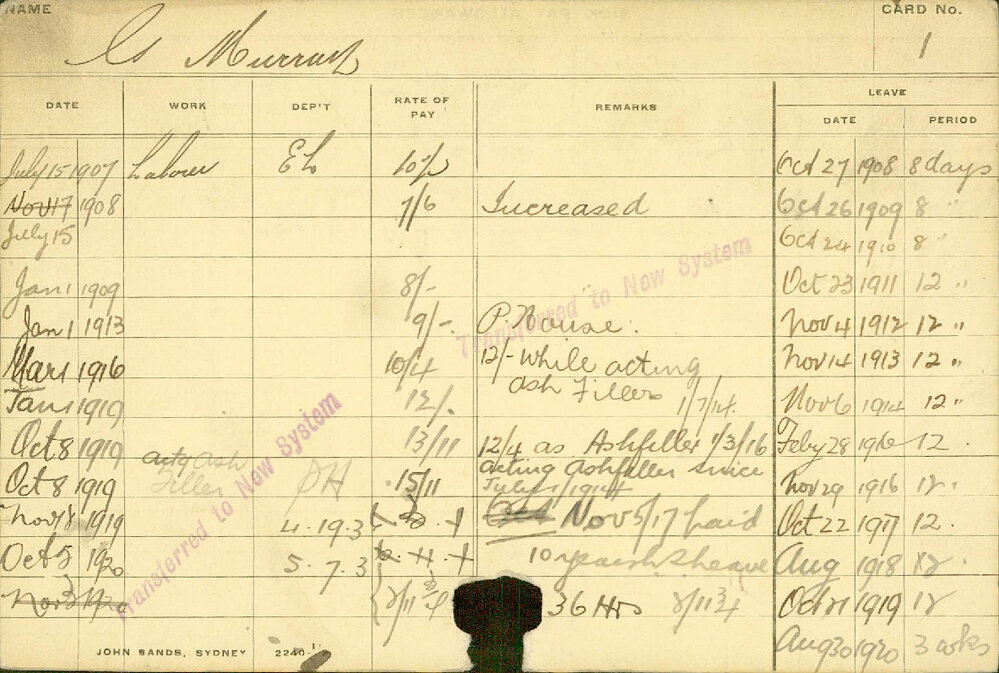 NAME Murray CARD No. 1
LEAVE
DATE WORK DEP'T RATE OF PAY REMARKS DATE PERIOD
July 15 1907 Laborer EL Oct 27 1908 8 days
Nov 17 1908 7/6 Increased Oct 26 1909 8 "
July 15 Oct 24 1910 8 "
Jan 1 1909 8/- Oct 23 1911 12 "
Jan 1 1913 9/- P. House. Nov 4 1912 12 "
Mar 1 1916 10/4 12/- while acting Nov 14 1913 12 "
Ash Fillers 1/7/14.
Jan 1 1919 12/. Nov 6 1914 12 "
Oct 8 1919 13/11 12/4 as Ashfiller 1/3/16 Feby 28 1916 12 .
Oct 8 1919 actg Ash Filler PH 15/11 acting Ashfiller since July 1/1914 Nov 29 1916 12 .
Nov 8 1919 4. 19. 3 Nov 5/17 paid Oct 22 1917 12 .
Oct 5 1920 5. 7. 3 10 years Aug 1918 12 .
Nov 1920 36 Hrs Oct 21 1919 12
Aug 30 1920 3 wks
Transferred to New System
Transferred to New System
JOHN SANDS, SYDNEY 2240-